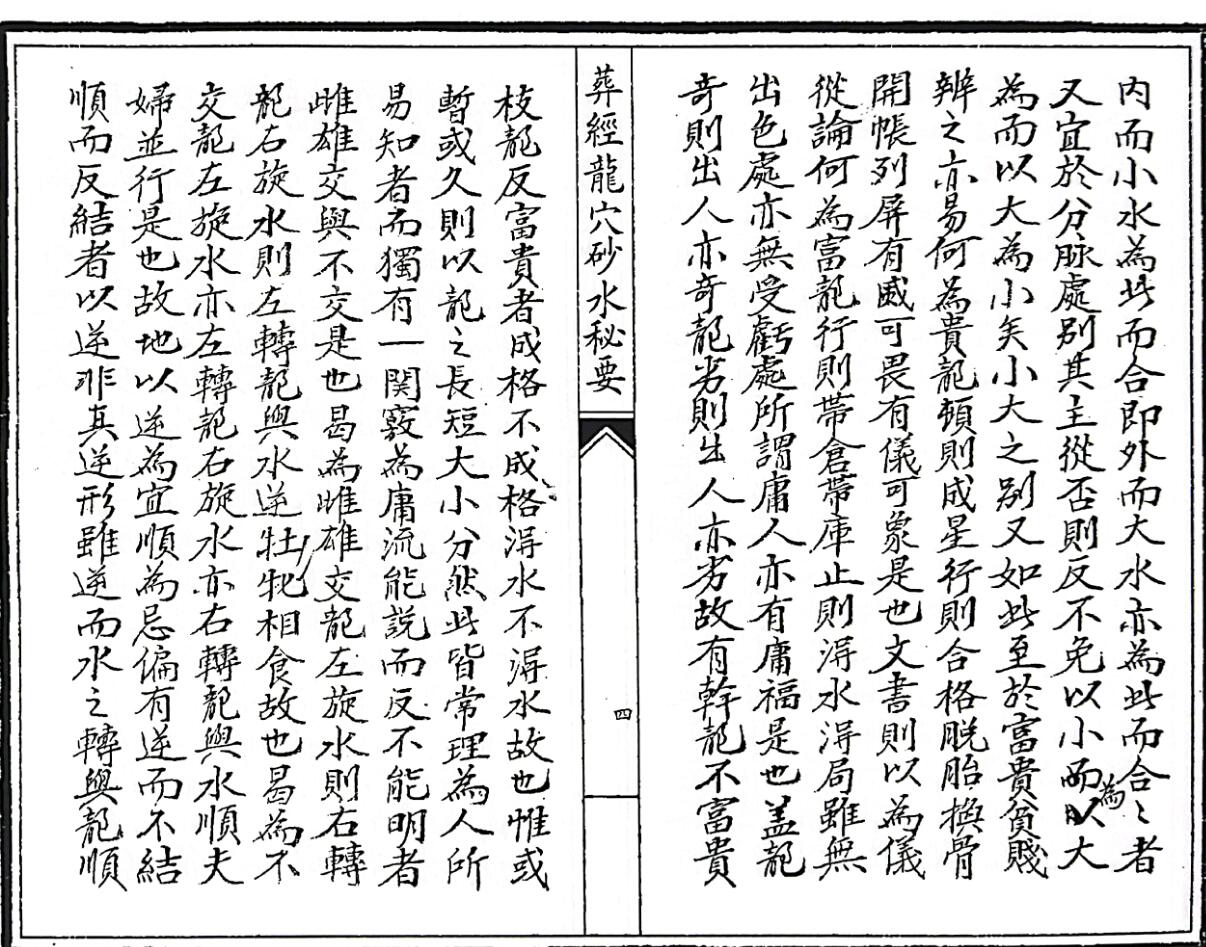 内而小水為此而合即外而大水亦為此而合〻者
又宜於分脉處别其主從否則反不免以小為大
為而以大為小矣小大之别又如此至於富貴貧賤
辨之亦易何為貴龍頓則成星行則合格脱胎換骨
開帳列屏有威可畏有儀可象是也文書則以為儀
從論何為富龍行則帶倉帶庫止則淂水淂局雖無
出色處亦無受虧處所謂庸人亦有庸福是也盖龍
奇則出人亦奇龍劣則出人亦劣故有幹龍不富貴
葬經龍穴砂水秘要
四
枝龍反富貴者成格不成格淂水不淂水故也惟或
暫或久則以龍之長短大小分然此皆常理為人所
易知者而獨有一関竅為庸流能説而反不能明者
雌雄交與不交是也曷為雌雄交龍左旋水則右轉
龍右旋水則左轉龍與水逆牡牝相食故也曷為不
交龍左旋水亦左轉龍右旋水亦右轉龍與水順夫
婦並行是也故地以逆為宜順為忌偏有逆而不結
順而反結者以逆非其逆形雖逆而水之轉與龍順